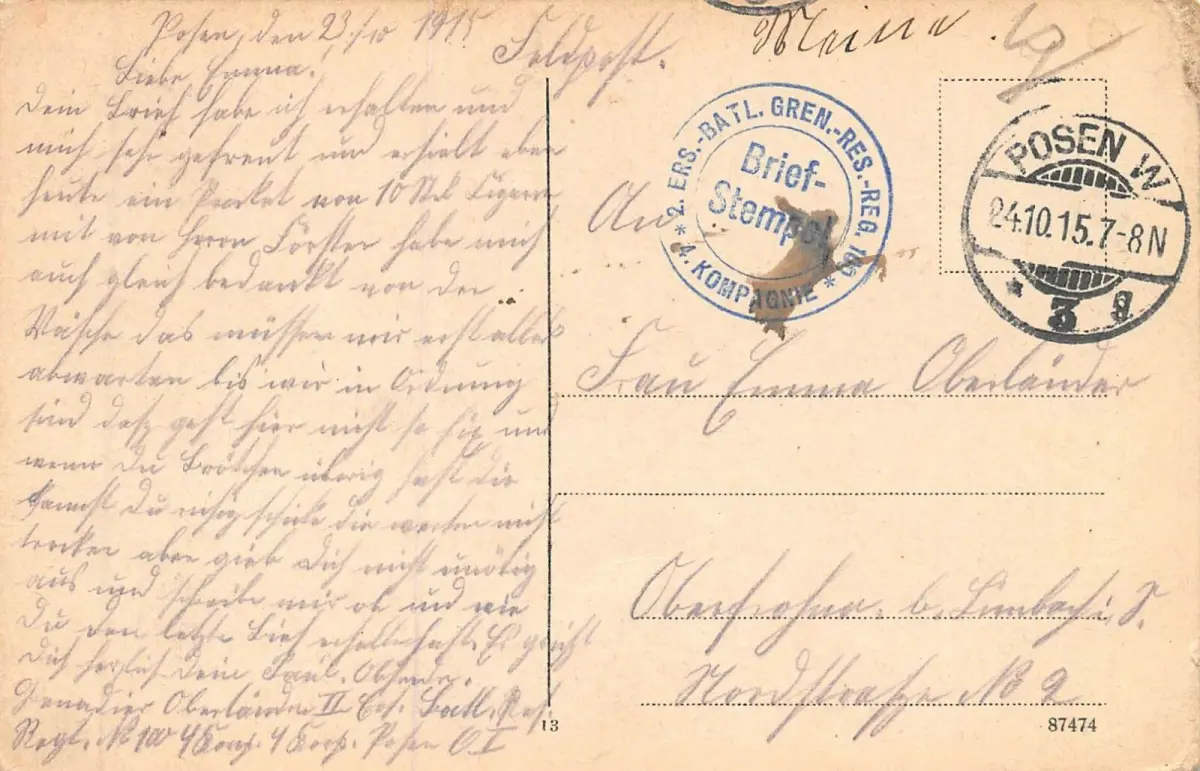 Posen, den 23./10 1915
Liebe Emma!
Dein Brief habe ich erhalten und
mich sehr gefreut und erhielt aber
heute ein Packet von 10 Stck Cigarren
mit von Herrn Förster habe mich
auch gleich bedankt von der
Wäsche das müssen wir erst alles
abwarten bis wir in Ordnung
sind das geht hier nicht so fix und
wenn Du Brötchen übrig hast die
kannst Du ruhig schicke die werden nicht
trocken aber gieb Dich nicht unötig
aus und schreibe mir ob und wie
Du den letzte Brief erhalten hast. Es grüßt
Dich herzlich Dein Paul. Absender.
Grenadier Oberländer II Ers. Batl. Res.
Regt. No 100 4 Komp. 4 Korp. Posen O. I
Feldpost.
Meine
* 2. ERS.-BATL. GREN.-RES.-REG. 100 *
4. KOMPAGNIE
Brief-
Stempel
POSEN W
24.10.15.7-8N
* 3
An
Frau Emma Oberländer
Oberfrohna. b. Limbach i. S.
Nordstraße No 2
13
87474